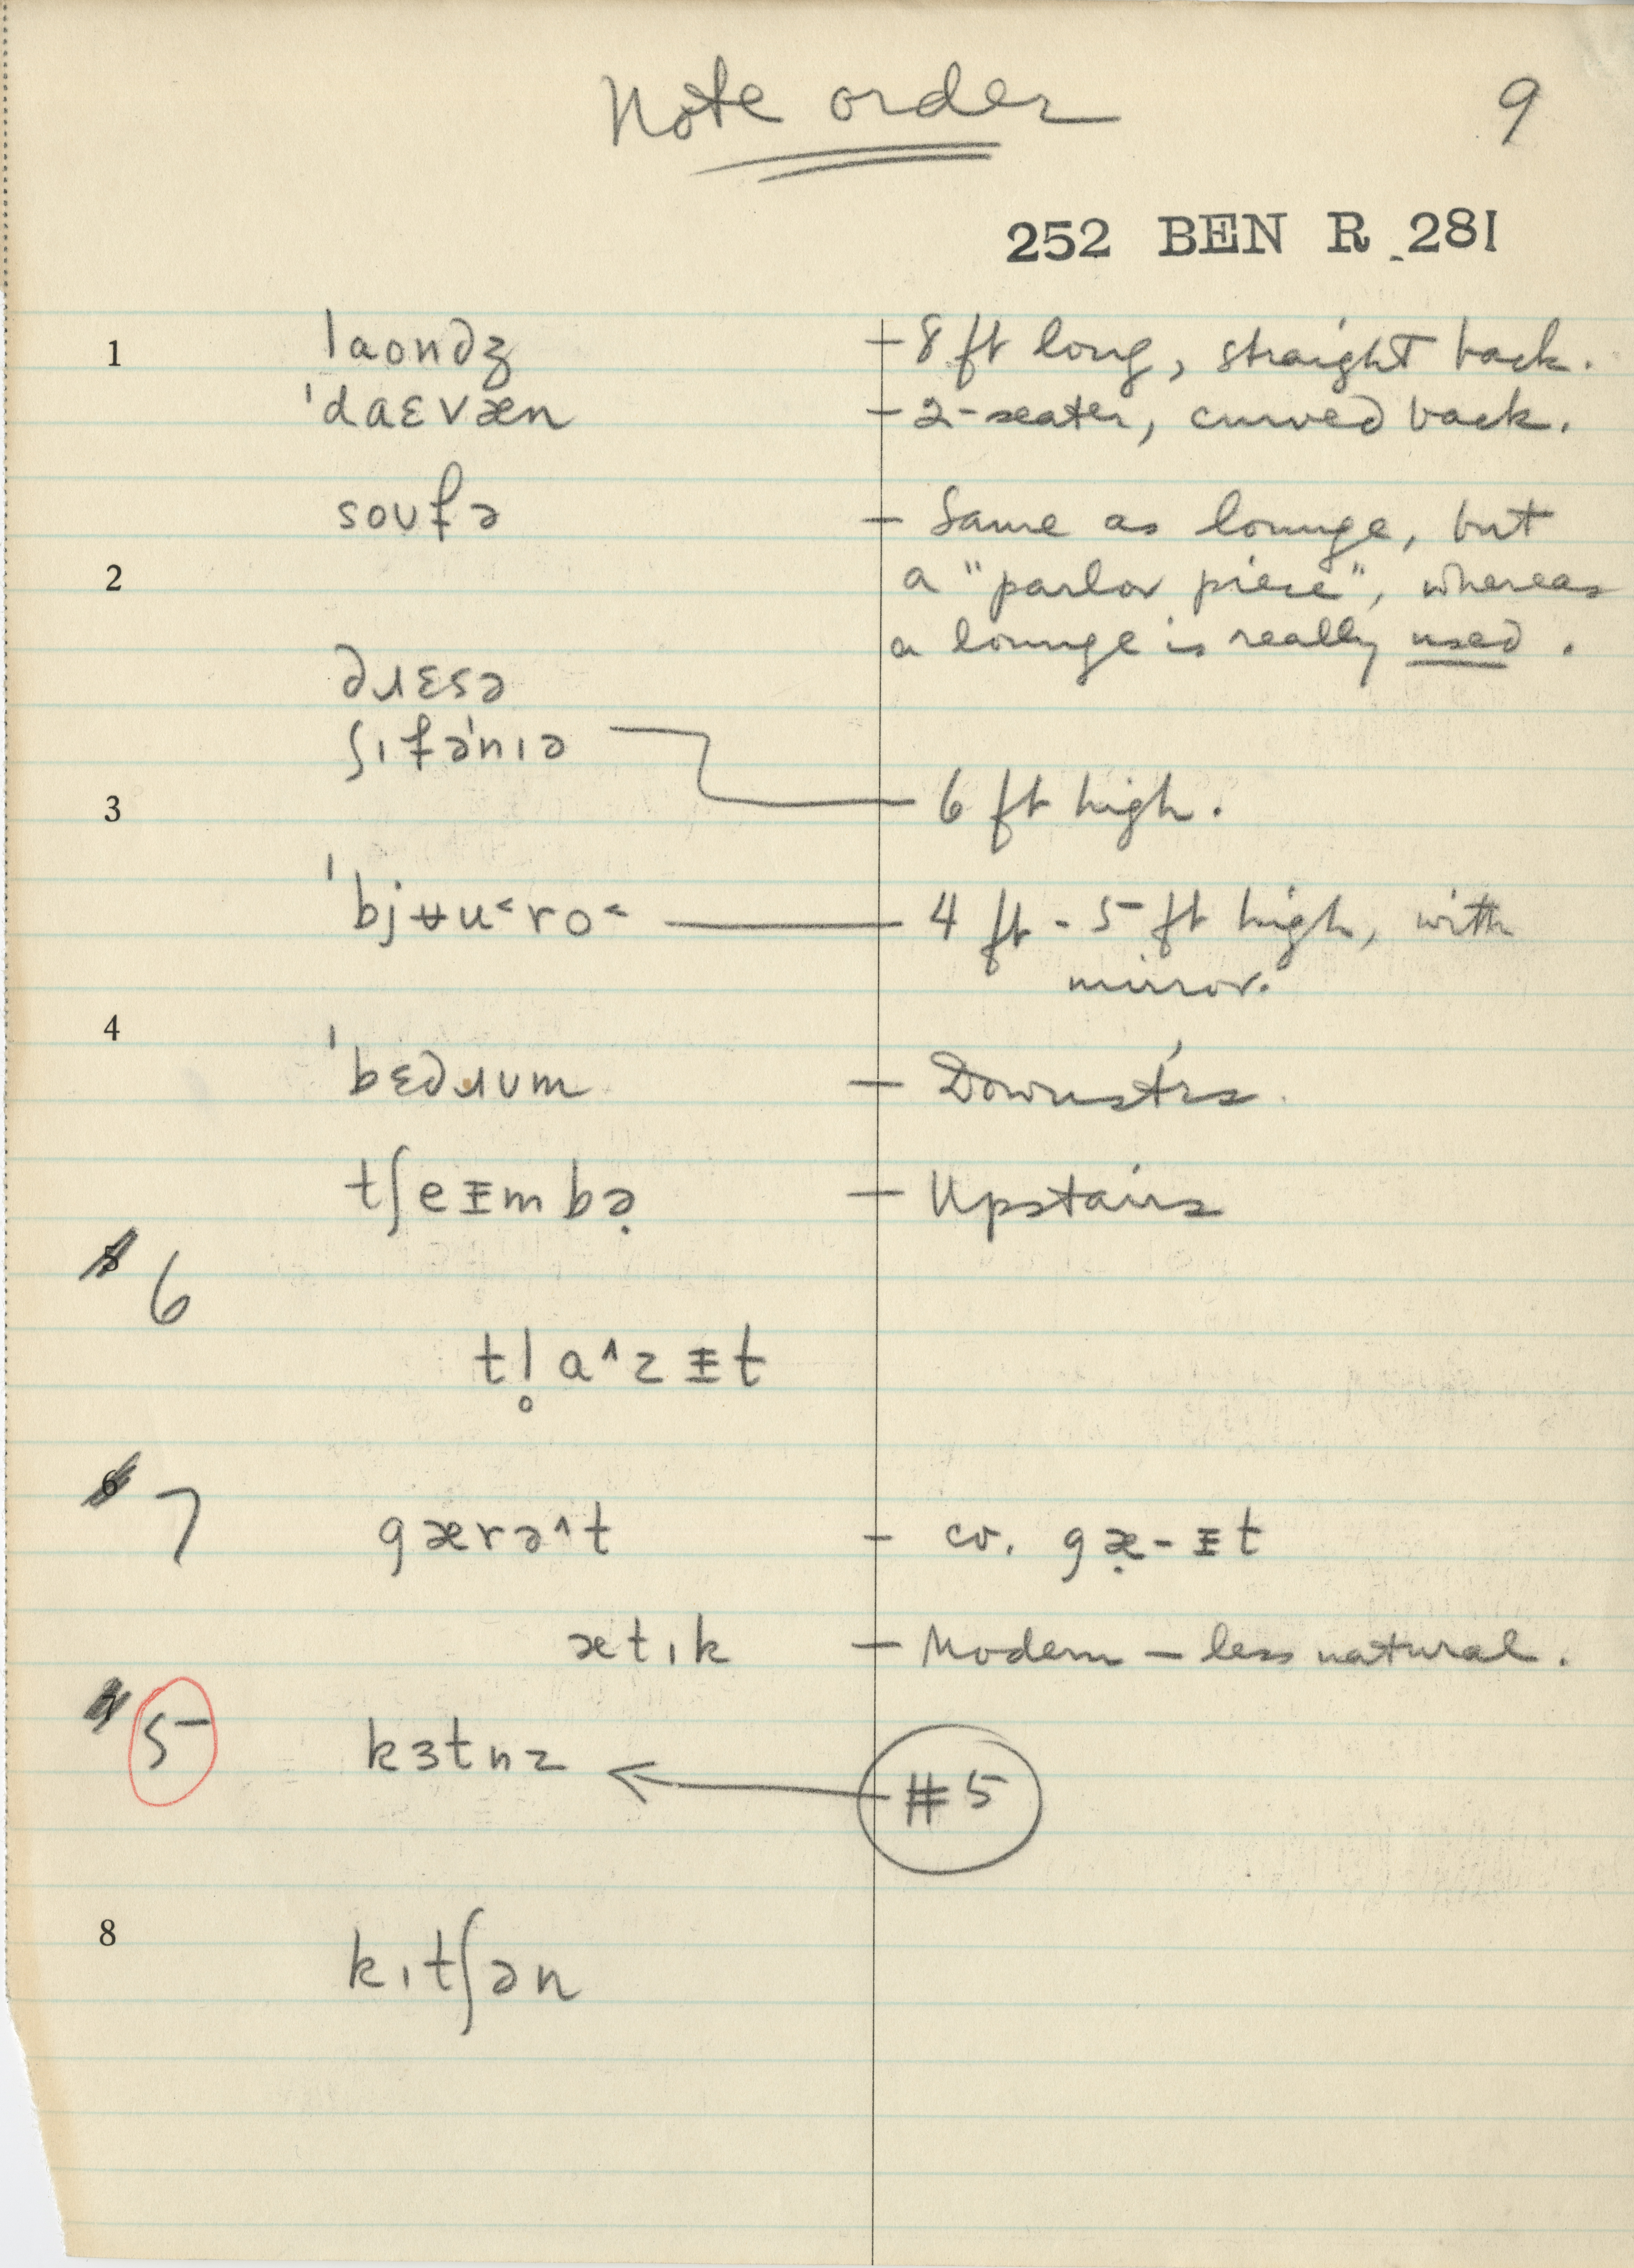 Note order
9
252 BEN R 281
1 laondʒ – 8 ft long, straight back.
ˈdaɛvæn – 2-seater, curved back.
soʊfə – Same as lounge, but
2 a "parlor piece", whereas
a lounge is really used.
dɹɛsə
ʃɪfəˈnɪə
3 6 ft high.
ˈbjʉu˂ro˂ 4 ft - 5 ft high, with
mirror.
4
ˈbɛdɹʊm – Downst'rs
tʃeᵻmbə̣ – Upstairs
6
tl̥a^zᵻt
7 gærə^t – cv. gæ̣-ᵻt
ætɪk – Modern – less natural.
5 kɜtnz ← #5
8 kɪtʃən